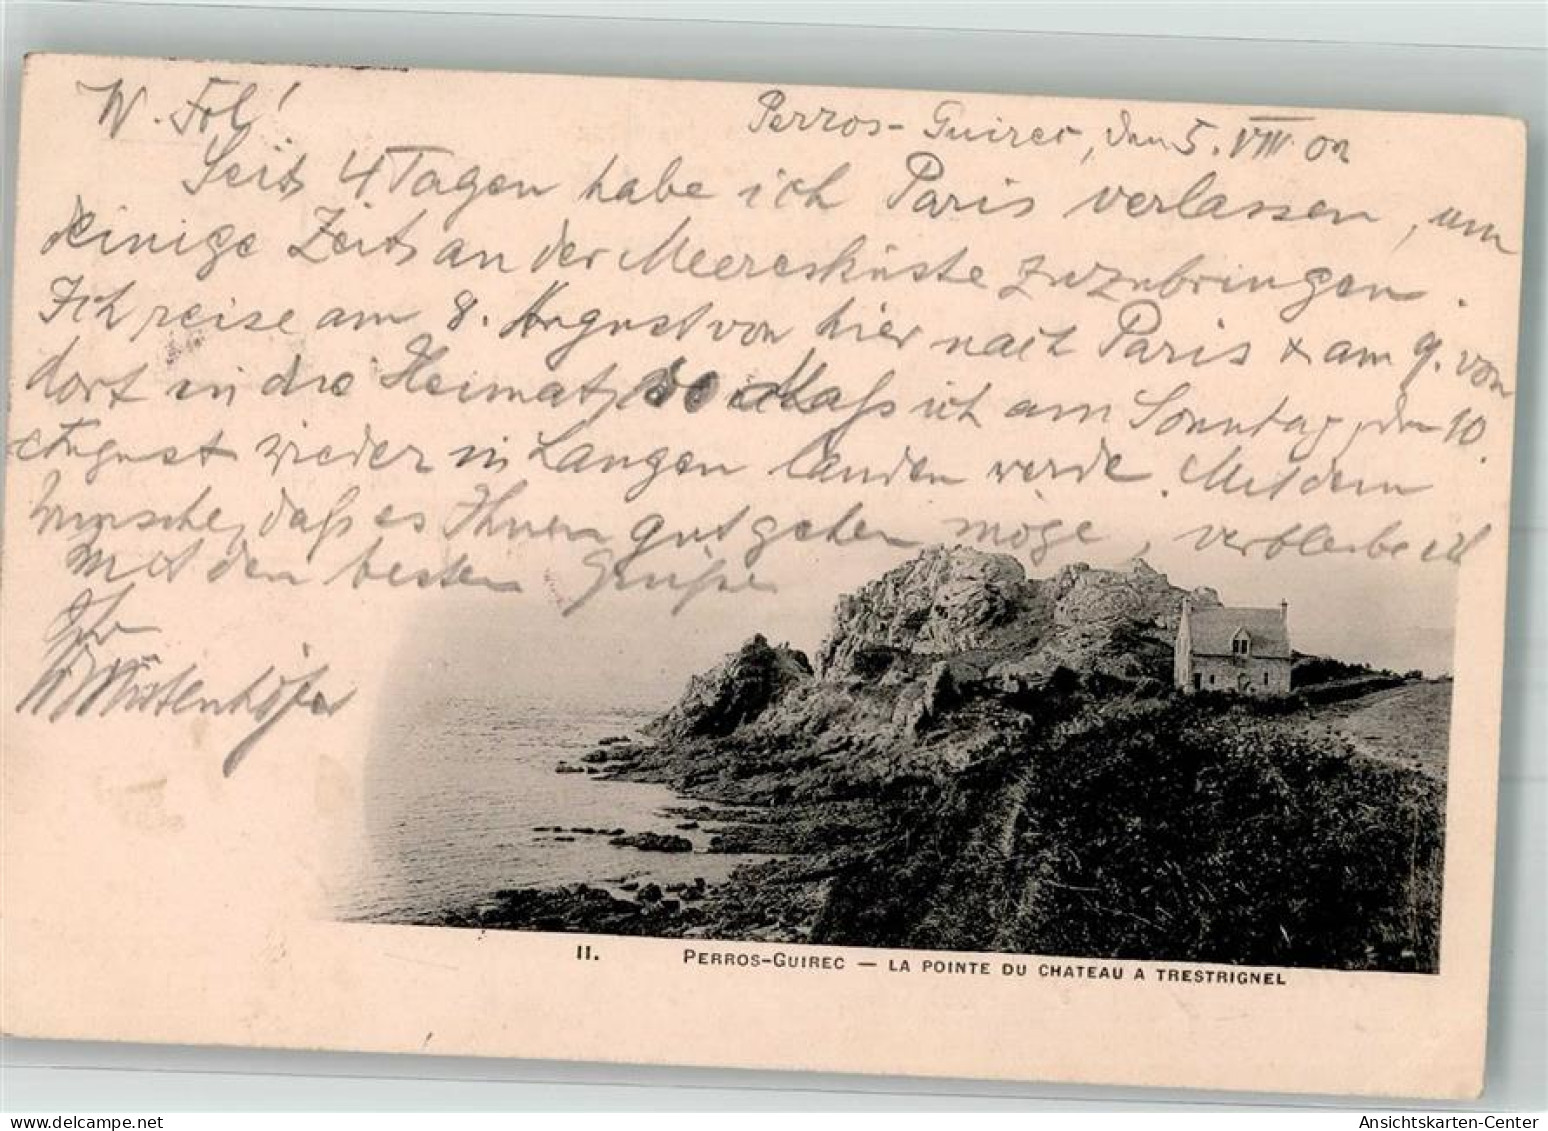 W. Frl!
Perros-Guirec, den 5. VIII 02
Seit 4 Tagen habe ich Paris verlassen, um
einige Zeit an der Meeresküste zuzubringen.
Ich reise am 8. August von hier nach Paris & am 9. von
dort in die Heimat, so daß ich am Sonntag, den 10.
August wieder in Langen landen werde. Mit dem
Wunsche, daß es Ihnen gut gehen möge, verbleibe ich
mit den besten Grüßen
Ihr
11. PERROS-GUIREC — LA POINTE DU CHATEAU A TRESTRIGNEL
Ansichtskarten-Center